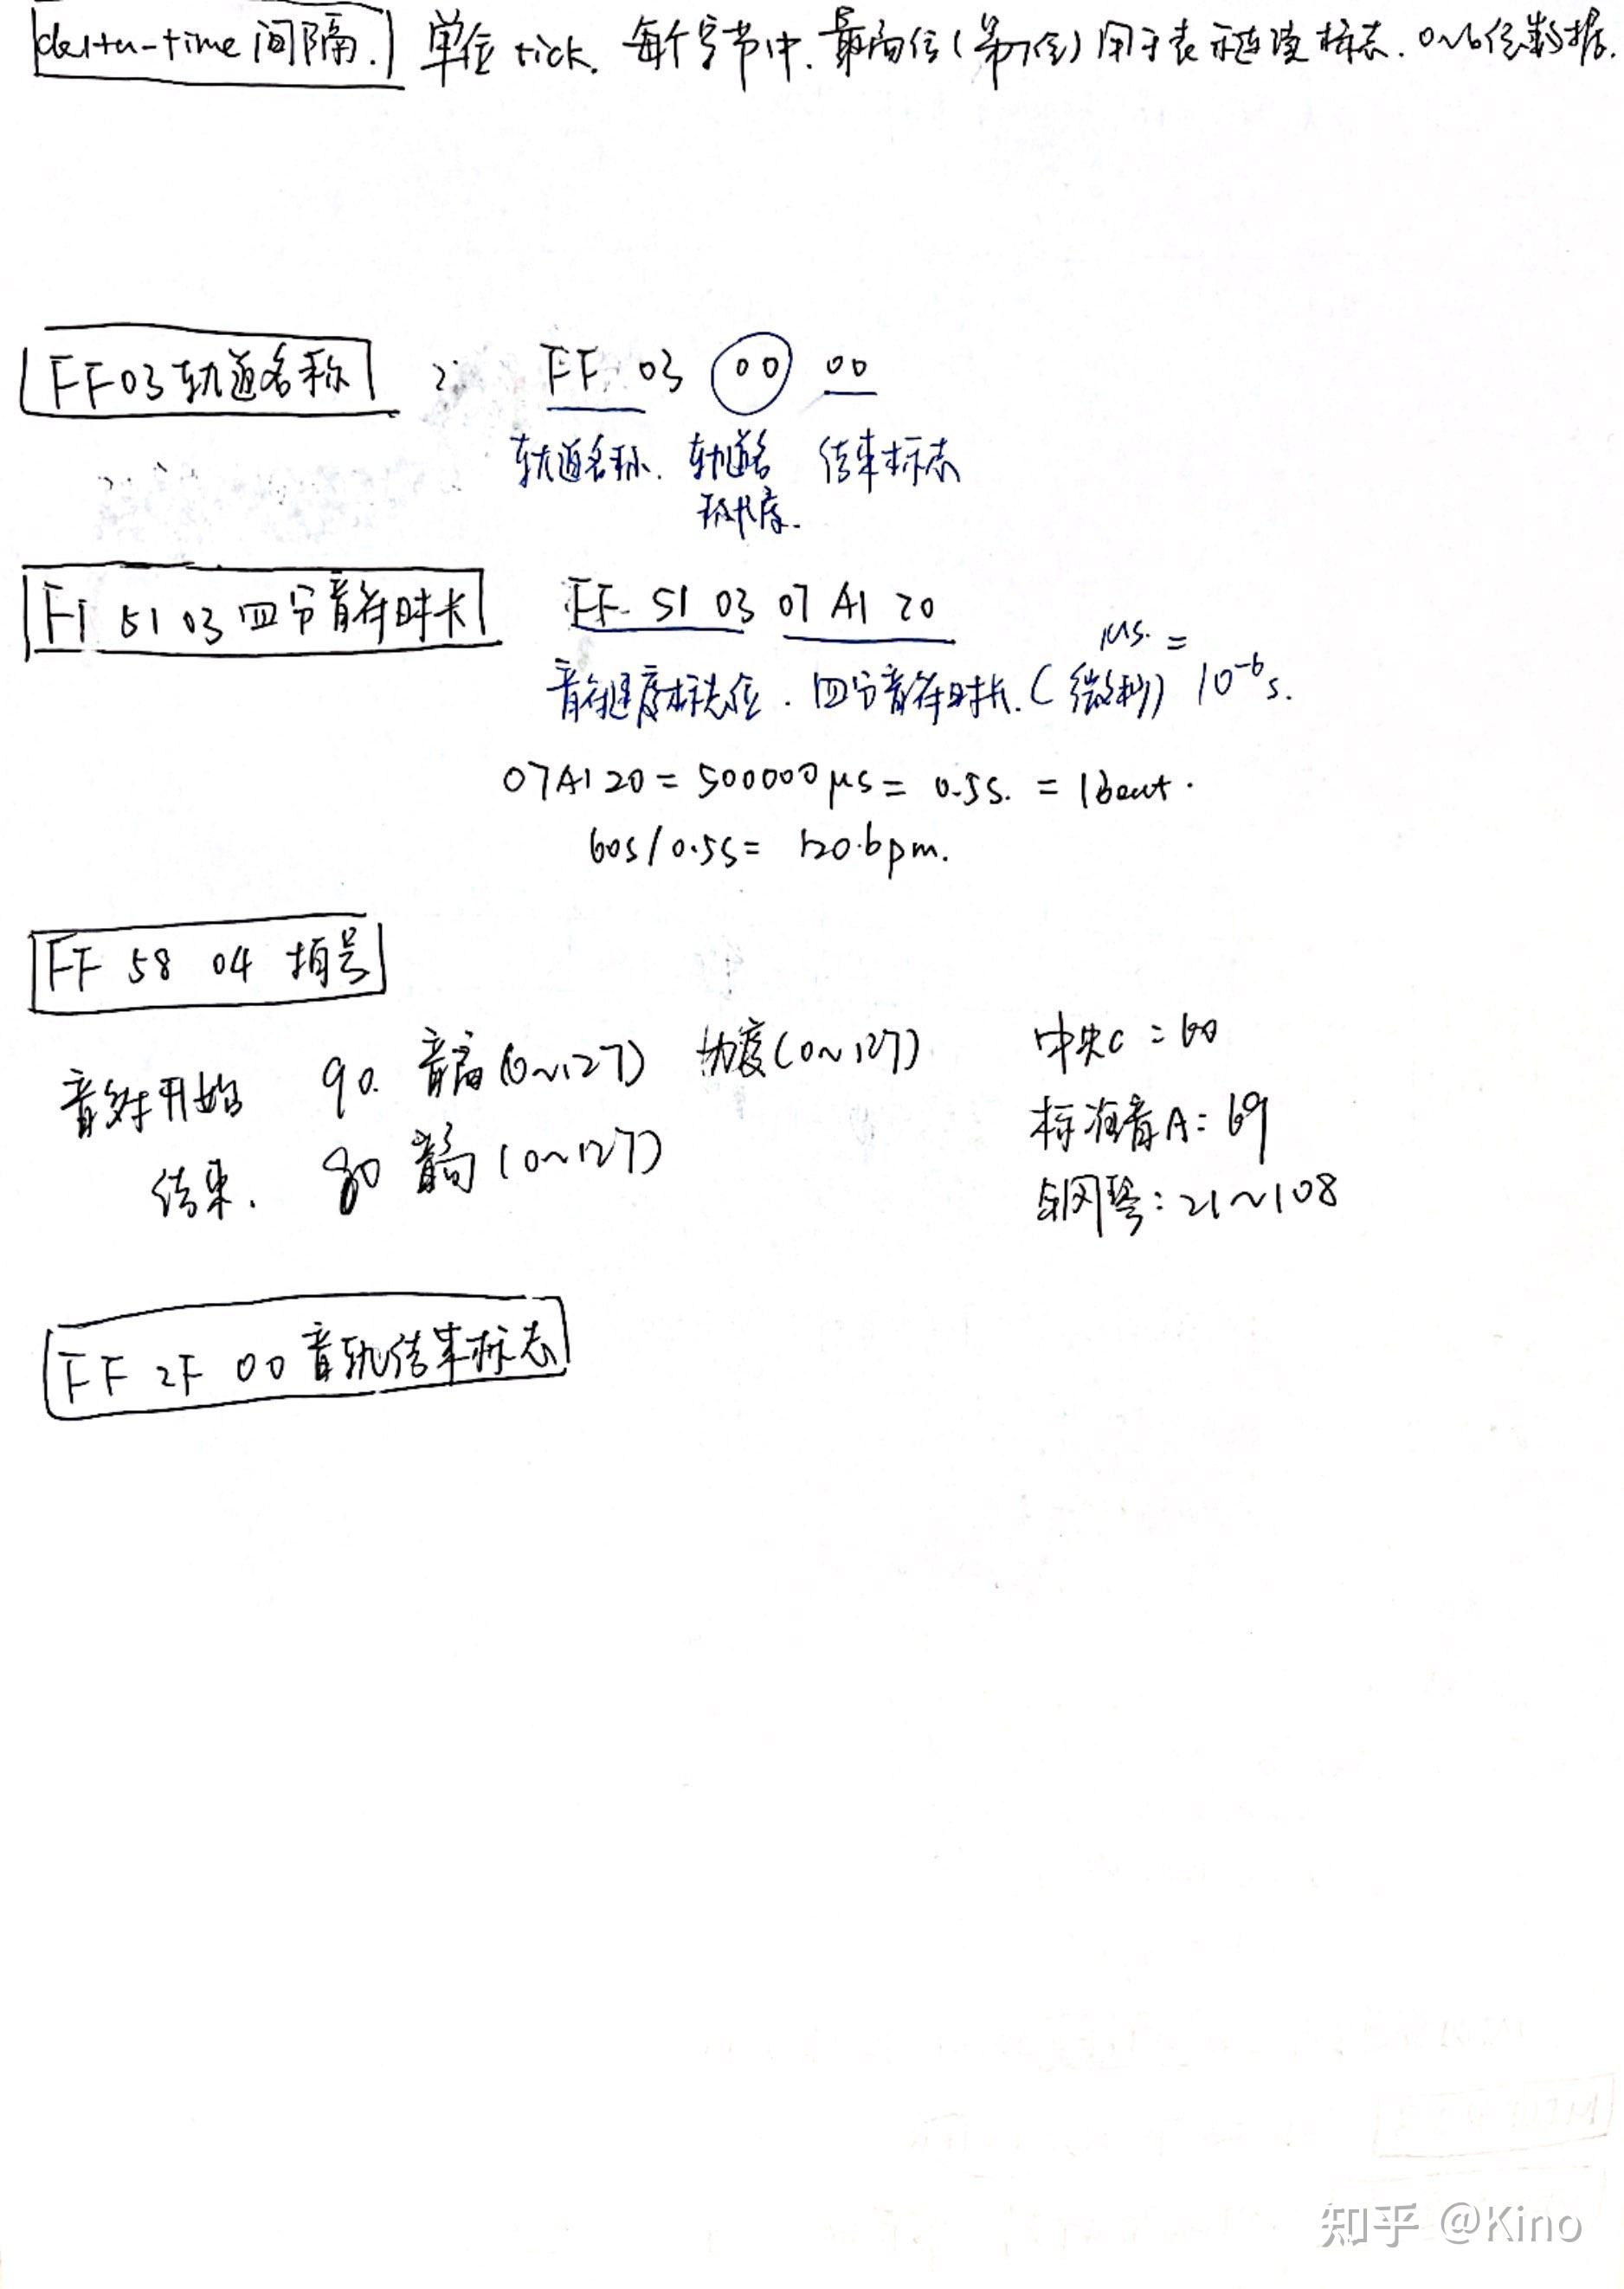 delta-time 间隔. 单位 tick. 每个字节中. 最高位(第7位)用于表示连续标志. 0~6位数据.
FF03 轨道名称 : FF 03 00 00
轨道名称. 轨道名 结束标志
称长度.
FF 51 03 四分音符时长 FF 51 03 07 A1 20
音符速度标志位. 四分音符时长.(微秒) μs. = 10⁻⁶s.
07A120 = 500000μs = 0.5s. = 1beat.
60s/0.5s = 120.bpm.
FF 58 04 拍号
音符开始 90. 音高(0~127) 力度(0~127) 中央C = 60
标准音A: 69
结束. 80 音高(0~127)
钢琴: 21~108
FF 2F 00 音轨结束标志
知乎 @Kino